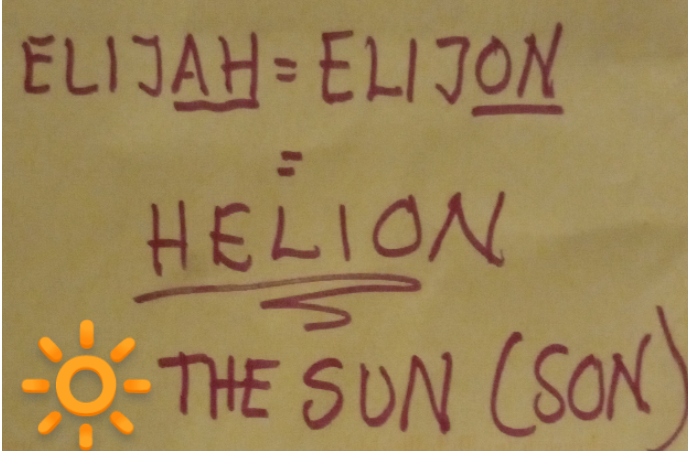 ELIJAH = ELIJON
=
HELION
THE SUN (SON)